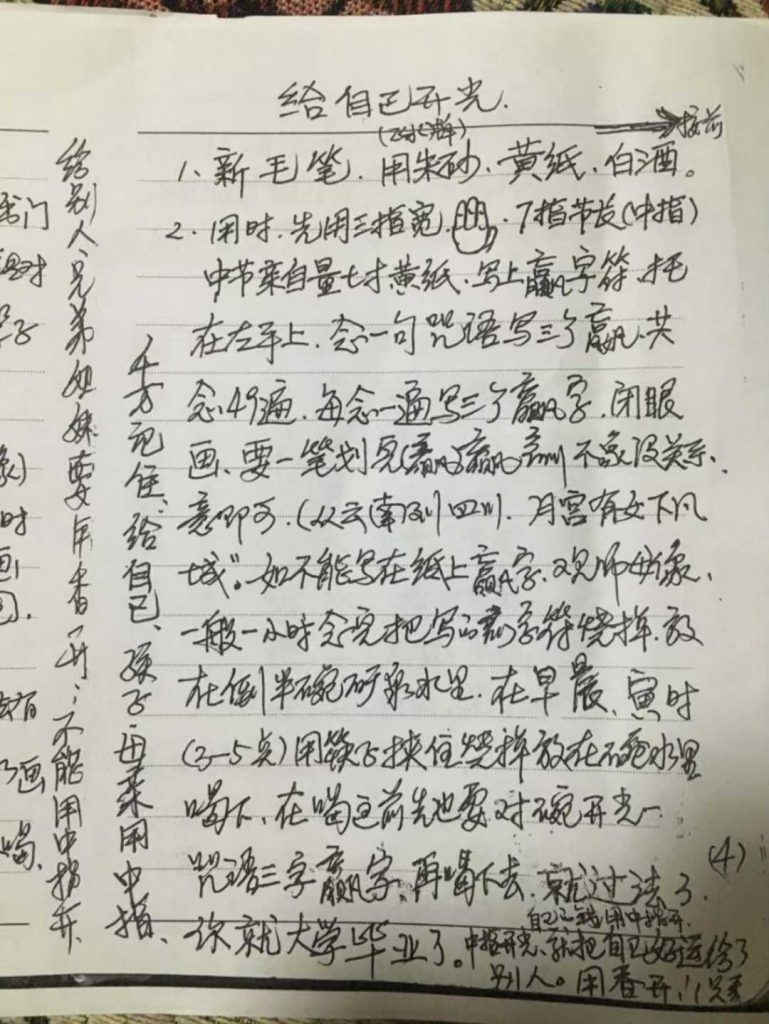 给自己开光.
→接前
1、新毛笔.用朱砂.黄纸.白酒。
2.用时.先用三指宽. .7指节长(中指)
中节亲自量七寸黄纸.写上赢字符.托
在左手上.念一句咒语写三个赢.共
念49遍.每念一遍写三个赢字.闭眼
画.要一笔划完(赢)赢 不象没关系.
意即可.(从云南到四川.月宫有女下凡
城"。如不能写在纸上赢字.观师 象.
一般一小时念完把写 字符烧掉.放
在倒半碗矿泉水里.在早晨.寅时
(3-5点)用筷子挟住烧掉放在碗水里
喝下.在喝之前先也要对碗开光一
咒语三字赢字.再喝下去.就过法了.
(4)
你就大学毕业了。
自己 用中指开.
中指开光.就把自己好运给了
别人。用香开!
千万记住.给自己.孩子.母亲用中指.
给别人.兄弟姐妹要用香开:不能用中指开.